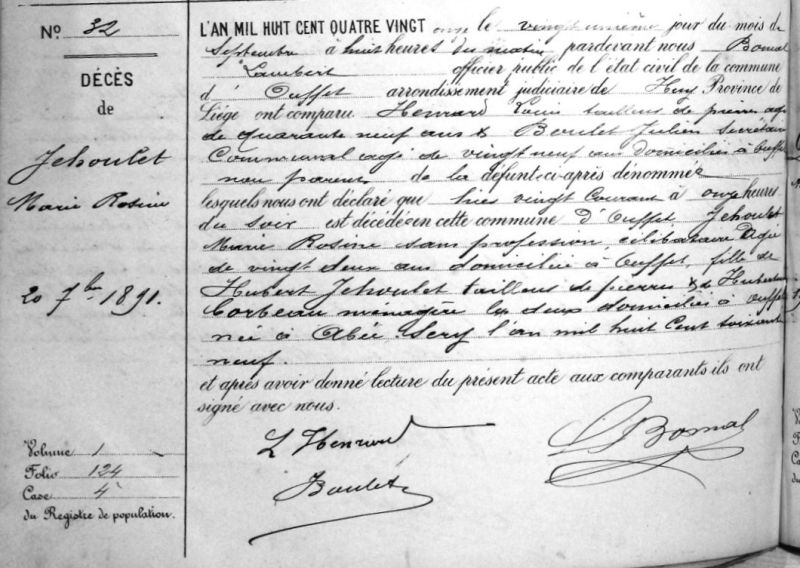 No 32
DÉCÈS
de
Jehoulet
Marie Rosine
20 7bre 1891.
Volume 1
Folio 124
Case 4
du Registre de population.
L'AN MIL HUIT CENT QUATRE VINGT onze le vingt unième jour du mois de
Septembre à huit heures du matin pardevant nous Bomal
Lambert officier public de l'état civil de la commune
d'Ouffet arrondissement judiciaire de Huy Province de
Liége ont comparu Henrard Louis tailleur de pierres agé
de quarante neuf ans & Boulet Julien Secrétaire
Communal agé de vingt neuf ans domiciliés à Ouffet
non parents de la défunte ci-après dénommée
lesquels nous ont déclaré que hier vingt Courant à onze heures
du soir est décédée en cette commune d'Ouffet Jehoulet
Marie Rosine sans profession, célibataire agée
de vingt deux ans domiciliée à Ouffet, fille de
Hubert Jehoulet tailleur de pierres & de
Corbeau ménagère les deux domiciliés à Ouffet
née à Abée Scry l'an mil huit Cent soixante
neuf.
et après avoir donné lecture du présent acte aux comparants ils ont
signé avec nous.
L Henrard
L Bomal
Boulet